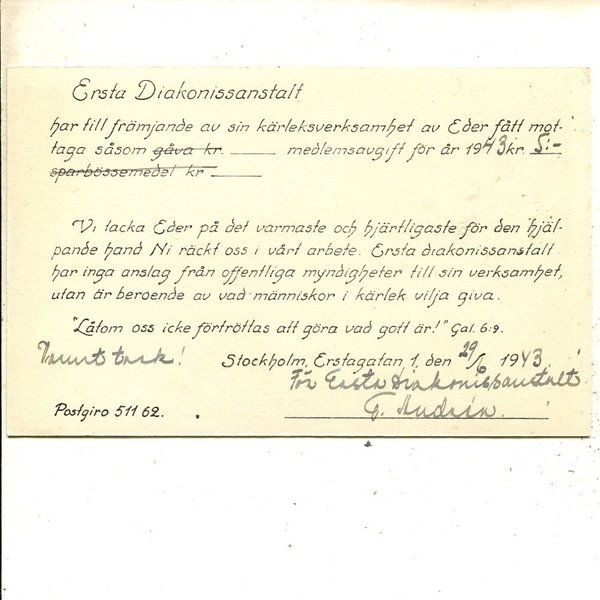 Ersta Diakonissanstalt
har till främjande av sin kärleksverksamhet av Eder fått mot-
taga såsom gåva kr. ____ medlemsavgift för år 1943 kr. 5:-
sparbössemedel kr ____
Vi tacka Eder på det varmaste och hjärtligaste för den hjäl-
pande hand Ni räckt oss i vårt arbete. Ersta diakonissanstalt
har inga anslag från offentliga myndigheter till sin verksamhet,
utan är beroende av vad människor i kärlek vilja giva.
"Låtom oss icke förtröttas att göra vad gott är!" Gal. 6:9.
Varmt tack! Stockholm, Erstagatan 1, den 29/1 1943
För Ersta diakonissanstalt
Postgiro 511 62.